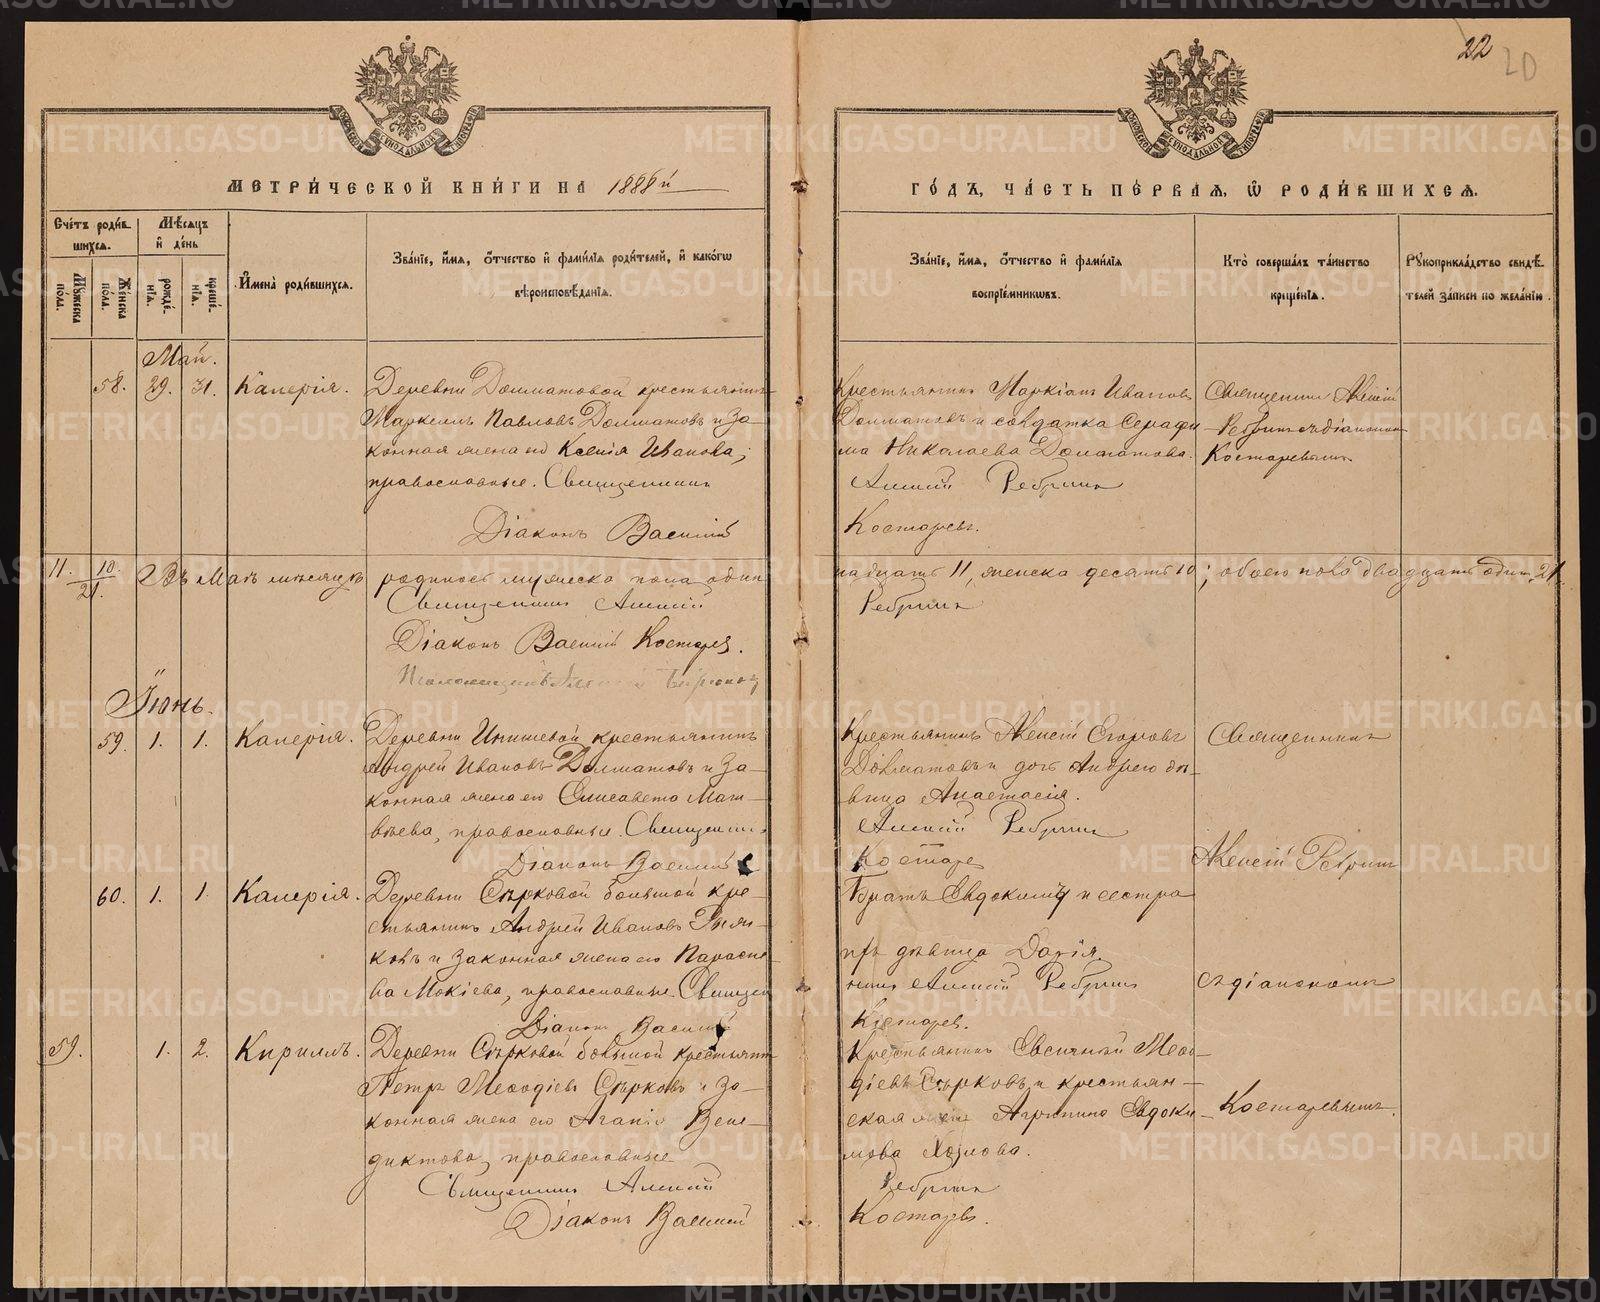 22
20
МЕТРИ́ЧЕСКОЙ КНИ́ГИ НА 1888й
ГО́ДЪ, ЧА́СТЬ ПЕ́РВАЯ, Ѽ РОДИ́ВШИХСЯ.
Сче́тъ роди́в-
шихся.
Мѣ́сяцъ
и҆ де́нь
Мꙋ́жеска
по́ла.
Же́нска
по́ла.
рожде́-
нїѧ.
креще́-
нїѧ.
И҆мена̀ роди́вшихся.
Зва́нїе, и҆́мя, ѻ҆́тчество и҆ фами́лїя роди́телей, и҆ како́гѡ
вѣроисповѣ́данїя.
Зва́нїе, и҆́мя, ѻ҆́тчество и҆ фами́лїя
воспрїе́мникѡвъ.
Кто̀ соверша́лъ та́инство
креще́нїя.
Рꙋкоприкла́дство свидѣ́-
телей за́писи по жела́нїю.
Май.
58. 29. 31. Калерія.
Деревни Долматовой крестьянинъ
Маркеллъ Павловъ Долматовъ и за-
конная жена его Ксенія Иванова;
православные. Священникъ
Діаконъ Василій
Крестьянинъ Маркіанъ Ивановъ
Долматовъ и солдатка Серафи
ма Николаева Долматова.
Алексій Ребринъ
Костаревъ.
Священникъ Алексій
Ребринъ съ діакономъ
Костаревымъ.
11. 10.
21.
Въ Маѣ мѣсяцѣ родилось мужеска пола один
надцать 11, женска десять 10; обоего пола двадцать одинъ, 21.
Священникъ Алексій
Ребринъ
Діаконъ Василій Костарев.
Псаломщикъ
Іюнь.
59. 1. 1. Калерія.
Деревни крестьянинъ
Андрей Ивановъ Долматовъ и за-
конная жена его Елисавета Мат-
вѣева, православные. Священникъ
Діаконъ Василій
Крестьянинъ Алексій Егоровъ
Долматовъ и дочь Андрея дѣ-
вица Анастасія.
Алексій Ребринъ
Костаре
Священникъ
Алексій Ребринъ
60. 1. 1. Калерія.
Деревни Сѣрковой большой кре-
стьянинъ Андрей Ивановъ
ковъ и законная жена его Параске-
ва Мокіева, православные. Священ
Діаконъ Василій
Братъ Евдокимъ и сестра
дѣвица Дарія.
никъ Алексій Ребринъ
Костарев.
съ діакономъ
59. 1. 2. Кириллъ.
Деревни Сѣрковой большой крестьянин
Петръ Меѳодіевъ Сѣрковъ и за-
конная жена его Агапія Вене-
диктова, православные
Священникъ Алексій
Діаконъ Василій
Крестьянинъ Евсигній Меѳо-
діевъ Сѣрковъ и крестьян-
ская жена Агрипина Евдоки-
мова
Ребринъ
Костарев.
Костаревымъ.
METRIKI.GASO-URAL.RU